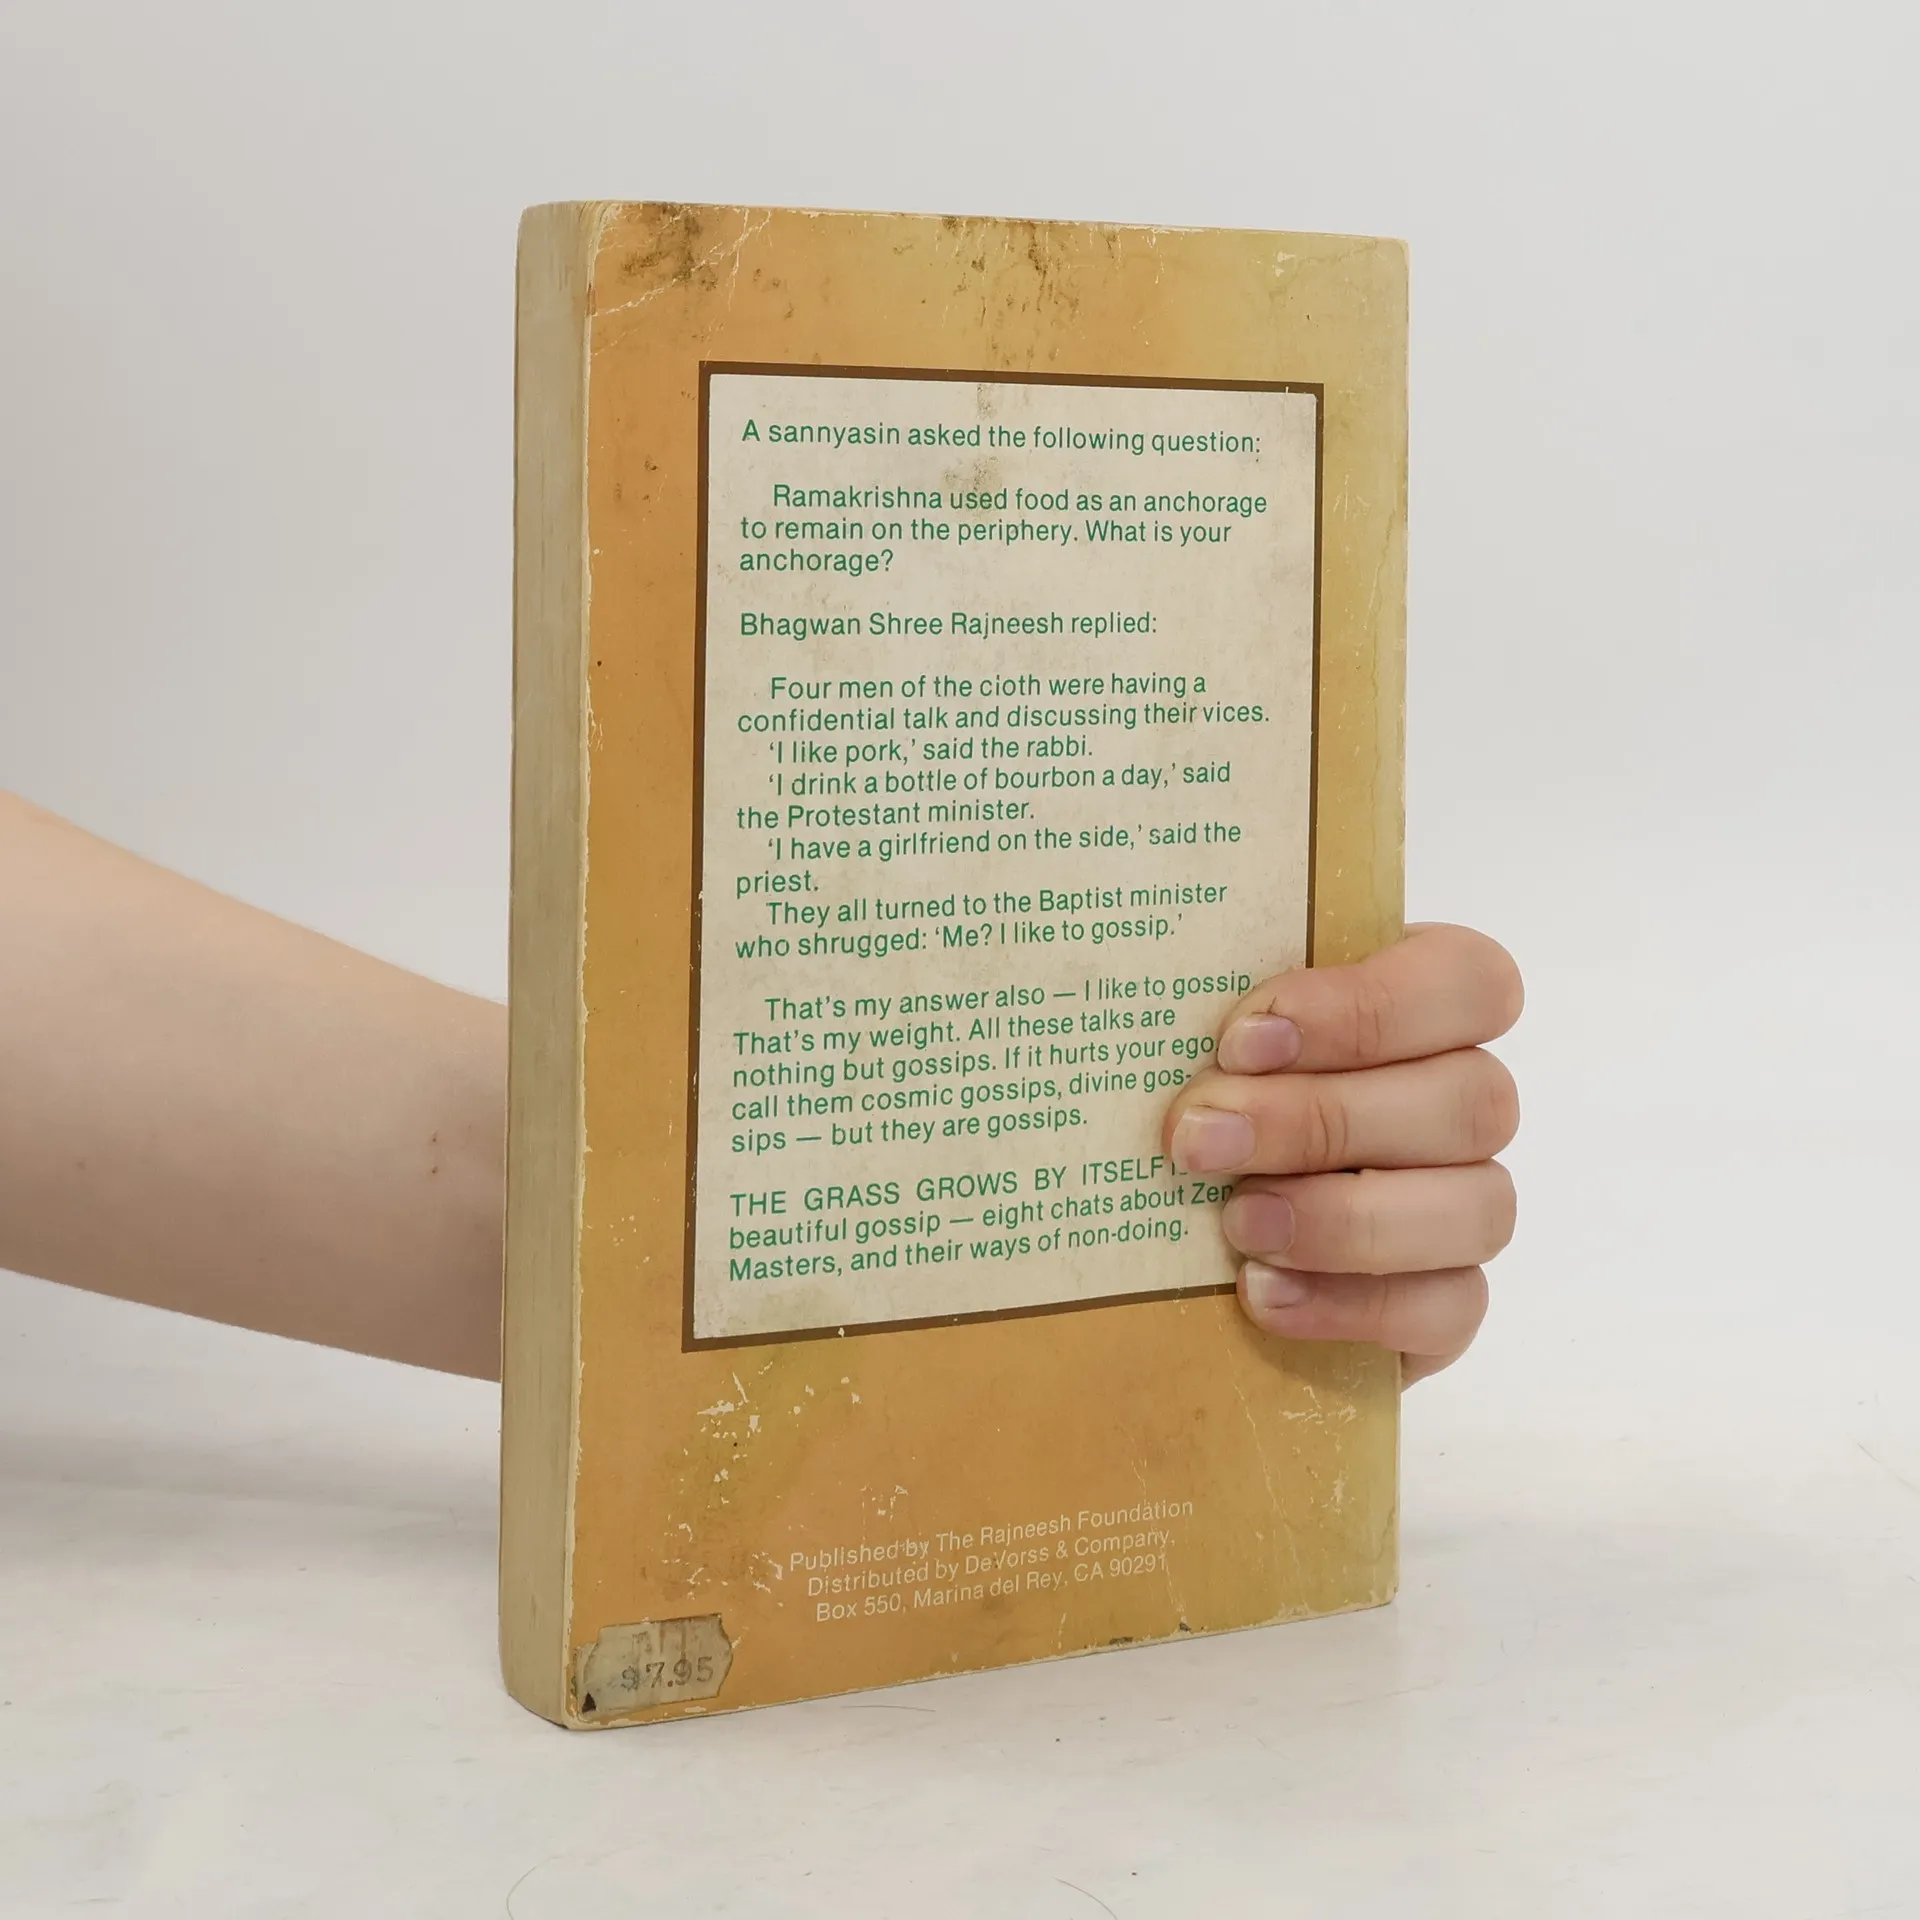 A sannyasin asked the following question:
Ramakrishna used food as an anchorage
to remain on the periphery. What is your
anchorage?
Bhagwan Shree Rajneesh replied:
Four men of the cloth were having a
confidential talk and discussing their vices.
‘I like pork,’ said the rabbi.
‘I drink a bottle of bourbon a day,’ said
the Protestant minister.
‘I have a girlfriend on the side,’ said the
priest.
They all turned to the Baptist minister
who shrugged: ‘Me? I like to gossip.’
That’s my answer also — I like to gossip.
That’s my weight. All these talks are
nothing but gossips. If it hurts your ego
call them cosmic gossips, divine gos-
sips — but they are gossips.
THE GRASS GROWS BY ITSELF
beautiful gossip — eight chats about Zen
Masters, and their ways of non-doing.
Published by The Rajneesh Foundation
Distributed by DeVorss & Company,
Box 550, Marina del Rey, CA 90291
$7.95